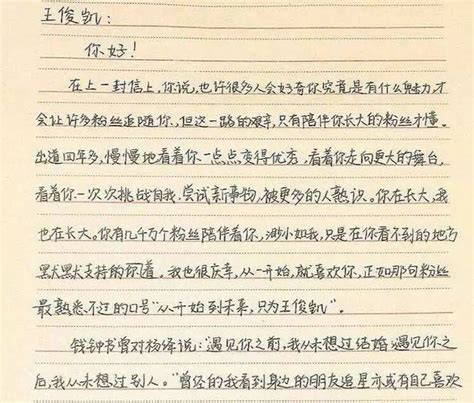 王俊凯:
你好!
在上一封信上,你说,也许很多人会好奇你究竟是有什么魅力,才
会让许多粉丝追随你,但这一路的艰辛,只有陪伴你长大的粉丝才懂。
出道四年多,慢慢地看着你一点点变得优秀,看着你走向更大的舞台,
看着你一次次挑战自我,尝试新事物,被更多的人熟识。你在长大,我
也在长大。你有几千万个粉丝陪伴着你,渺小如我,只是在你看不到的地方
默默支持的你着。我也很庆幸,从一开始,就喜欢你,正如那句粉丝
最熟悉不过的口号"从开始到未来,只为王俊凯"。
钱钟书曾对杨绛说:"遇见你之前,我从未想过结婚,遇见你之
后,我从未想过别人。"曾经的我看到身边的朋友追星亦或有自己喜欢